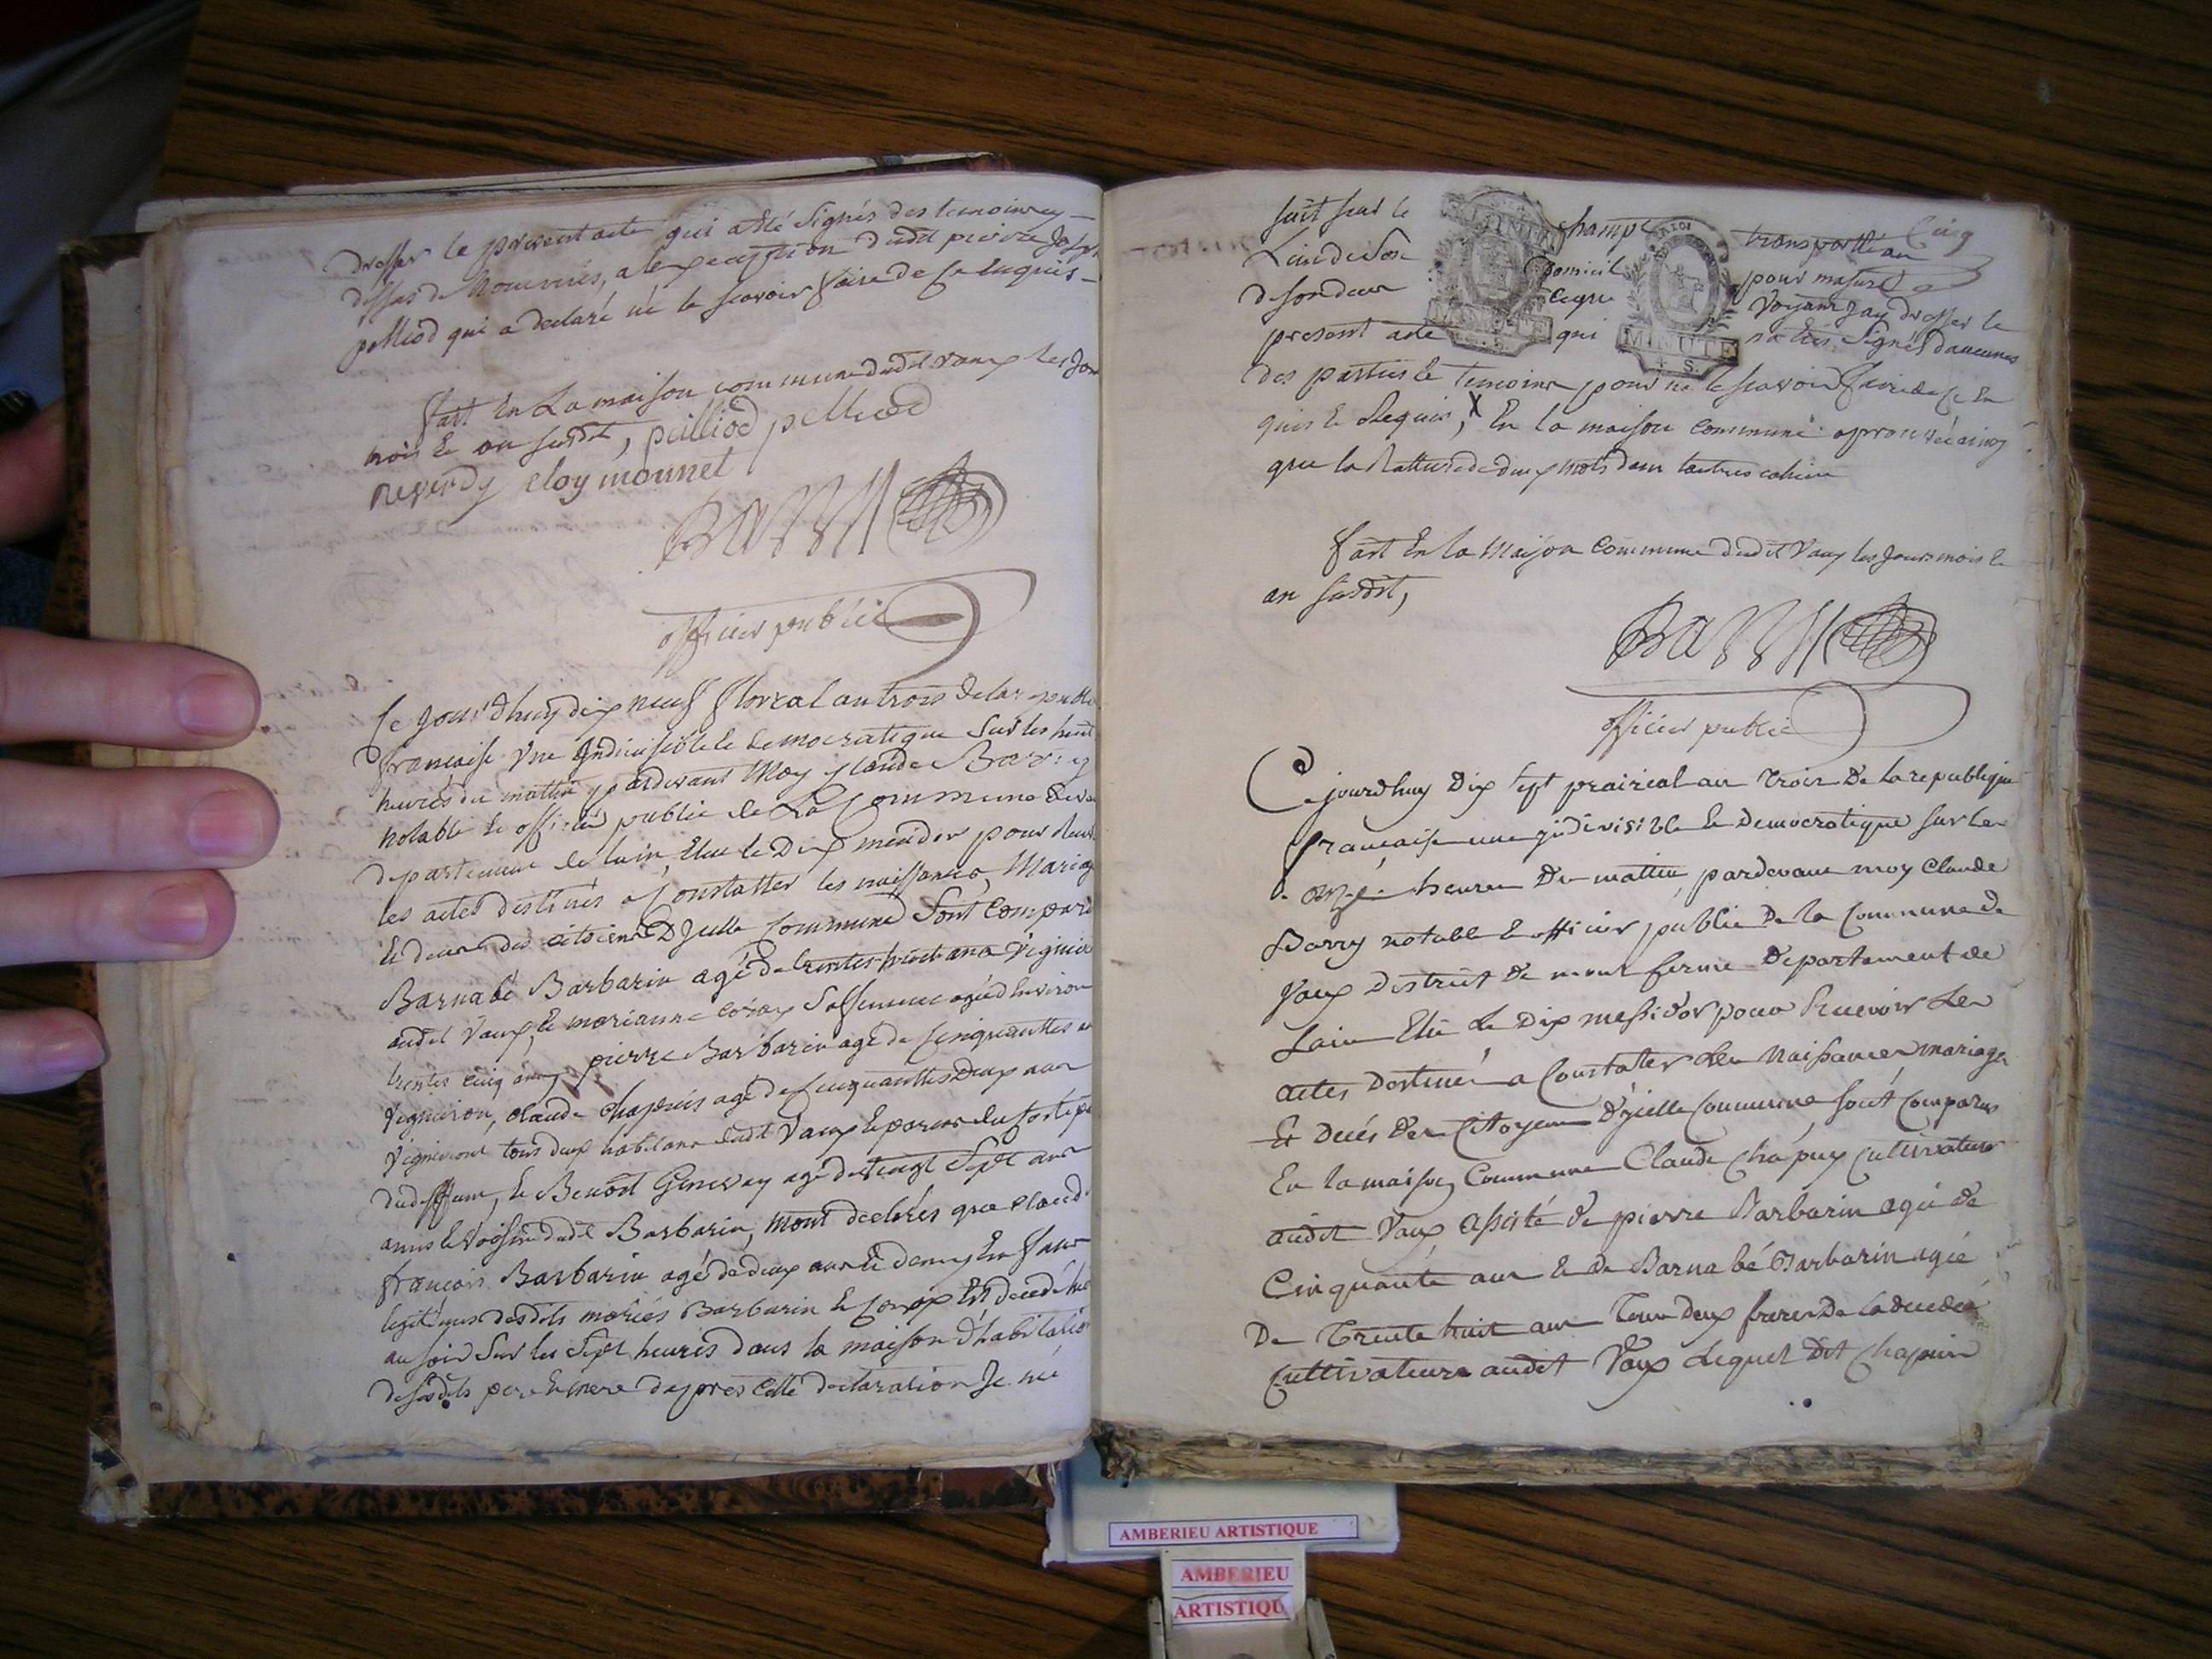 dresser le present acte qui a été Signés des temoins cy
dessus denommés, a lexception dudit pierre Joseph
pelliod qui a declaré né le scavoir faire de ce Enquis
fait En La maison commune dudit vaux les Jour
mois Et an susdit, pelliod pelliod
reverdy eloy monnet
Barry
officier public
Ce Jourd'huy dix neuf floreal an trois de la republi
francaise Une Indivisible et democratique Sur les huit
heures du mattin pardevant Moy Claude Barry
notable Et officier public de La Commune de vau
departement de lain, Elue le Dix messidor pour
les actes destinés a Constatter les naissances, Mariag
Et deces des citoiens D Jcelle Commune Sont Comparu
Barnabé Barbarin agé de trentes huit ans Vigniero
audit Vaux, et marianne Sa femme agé d Environ
trentes cinq ans, pierre Barbarin agé de Cinquanttes a
Vigneiron, claude chapuis agé de Cinquanttes Deux ans
Vignieront tous deux habitans dudit Vaux
dudeffunt, Et Benoit Genevay agé de Vingt Sept ans
amis Et Voisin dudit Barbarin, Mont declarés que Claud
francois Barbarin agé de deux ans Et demy En fans
legitimes desdits mariés Barbarin Et Est decedé hie
au soir Sur les Sept heures dans la maison d'habitatio
desdits pere Et mere dapres cette declaration Je mé
Cinq
suit sur le champ transporttée au
Lieu de Son Domicil pour masuré
de son deces ceque Voyant Jay dresser le
present acte qui n a étés Signés daucunes
des parties Et temoins pour ne le scavoir faire de ce En
quis Et Requis, X En la maison Commune approuvée ainsy
que la Ratture de deux mots dans lautres cahier
MINUTE
MINUTE
4 S.
fait En la Maison Commune dudit Vaux les Jours mois Et
an susdit,
Barry
officier public
Cejourdhuy Dix Sept prairial an Trois De la republique
francaise une jndivisible Et Democratique sur les
onze heures Du mattin, pardevant moy Claude
Barry notable Et officier public De la Commune de
Vaux District de mont ferme Departement de
Lain Elu Le Dix messidor pour Recevoir Les
actes Destinés a Constater Les Naissances, mariages
Et Decés Des Citoyens D'jcelle Commune sont Comparus
En la maison Commune Claude Chapuy Cultivateur
audit Vaux assisté de pierre Barbarin agé de
Cinquante ans Et de Barnabé Barbarin agée
De Trente huit ans Tous deux freres De la decedée
Cultivateurs audit Vaux Lequel Dit Chapuis
AMBERIEU ARTISTIQUE
AMBERIEU
ARTISTIQU